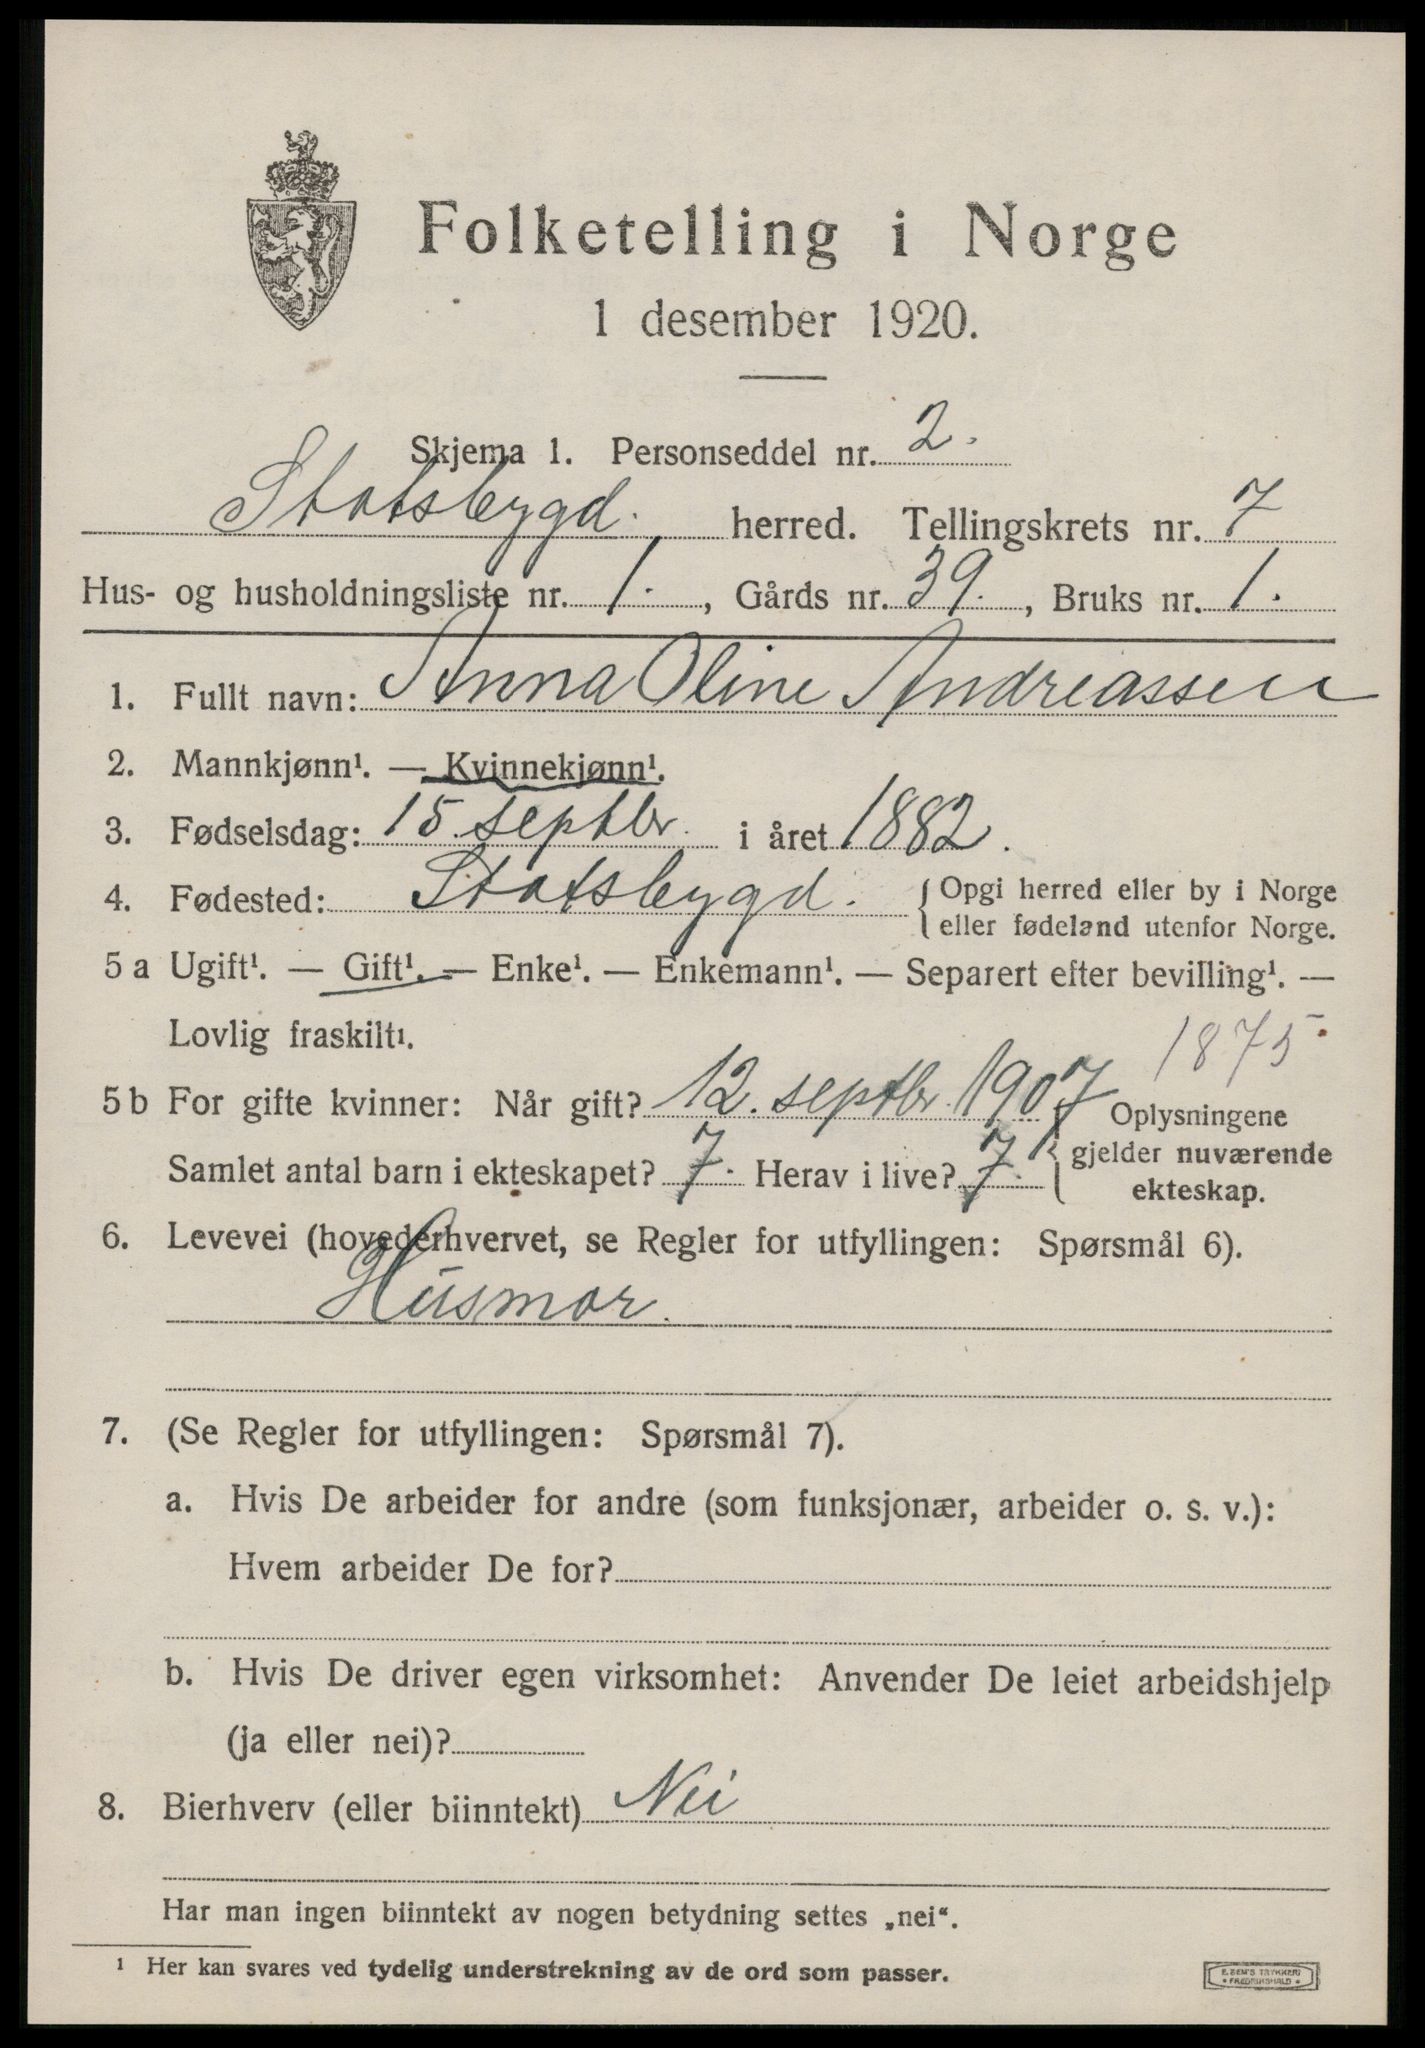 Folketelling i Norge
1 desember 1920.
Skjema 1. Personseddel nr. 2.
Statsbygd. herred. Tellingskrets nr. 7
Hus- og husholdningsliste nr. 1., Gårds nr. 39., Bruks nr. 1.
1. Fullt navn: Anna Oline Andreassen
2. Mannkjønn¹. — Kvinnekjønn¹.
3. Fødselsdag: 15. septbr. i året 1882.
4. Fødested: Statsbygd. { Opgi herred eller by i Norge
eller fødeland utenfor Norge.
5 a Ugift¹. — Gift¹. — Enke¹. — Enkemann¹. — Separert efter bevilling¹. —
Lovlig fraskilt¹.
1875
5 b For gifte kvinner: Når gift? 12. septbr. 1907 { Oplysningene
Samlet antal barn i ekteskapet? 7. Herav i live? 7. gjelder nuværende
ekteskap.
6. Levevei (hovederhvervet, se Regler for utfyllingen: Spørsmål 6).
Husmor.
7. (Se Regler for utfyllingen: Spørsmål 7).
a. Hvis De arbeider for andre (som funksjonær, arbeider o. s. v.):
Hvem arbeider De for?
b. Hvis De driver egen virksomhet: Anvender De leiet arbeidshjelp
(ja eller nei)?
8. Bierhverv (eller biinntekt) Nei
Har man ingen biinntekt av nogen betydning settes „nei“.
¹ Her kan svares ved tydelig understrekning av de ord som passer.
E. SEM'S TRYKKERI
FREDRIKSHALD